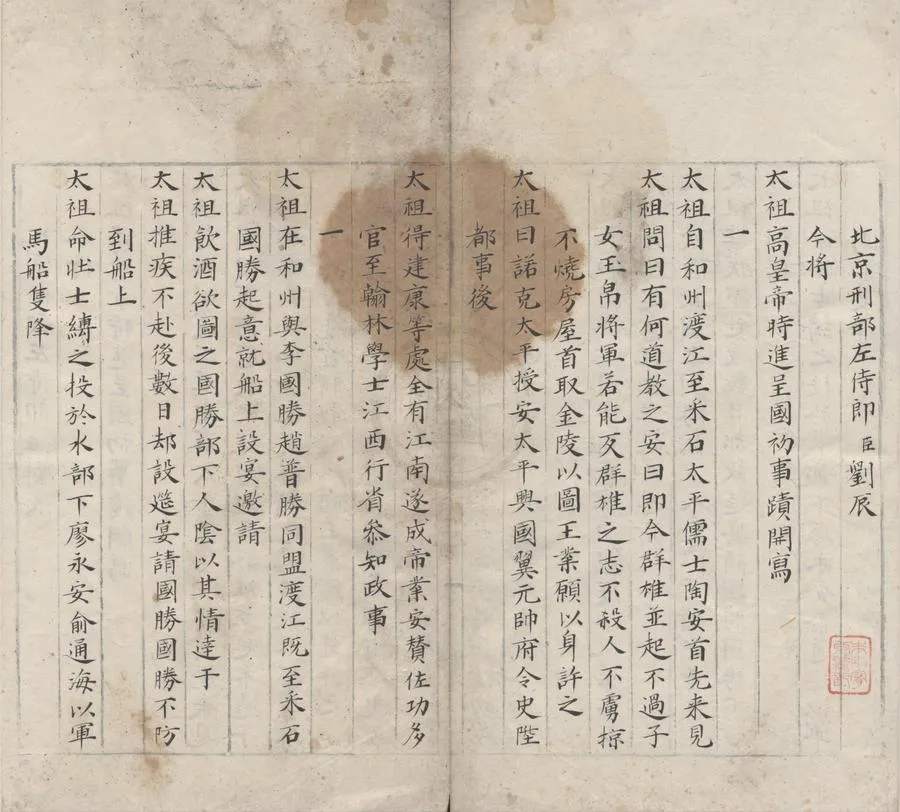 北京刑部左侍郎臣劉辰
今將
太祖高皇帝時進呈國初事蹟開寫
一
太祖自和州渡江至采石太平儒士陶安首先来見
太祖問曰有何道教之安曰即今群雄並起不過子
女玉帛將軍若能反群雄之志不殺人不虜掠
不燒房屋首取金陵以圖王業願以身許之
太祖曰諾克太平授安太平興國翼元帥府令史陞
都事後
太祖得建康等處全有江南遂成帝業安贊佐功多
官至翰林學士江西行省叅知政事
一
太祖在和州與李國勝趙普勝同盟渡江既至采石
國勝起意就船上設宴邀請
太祖飲酒欲圖之國勝部下人陰以其情達于
太祖推疾不赴後數日却設筵宴請國勝國勝不防
到船上
太祖命壯士縛之投於水部下廖永安俞通海以軍
馬船隻降